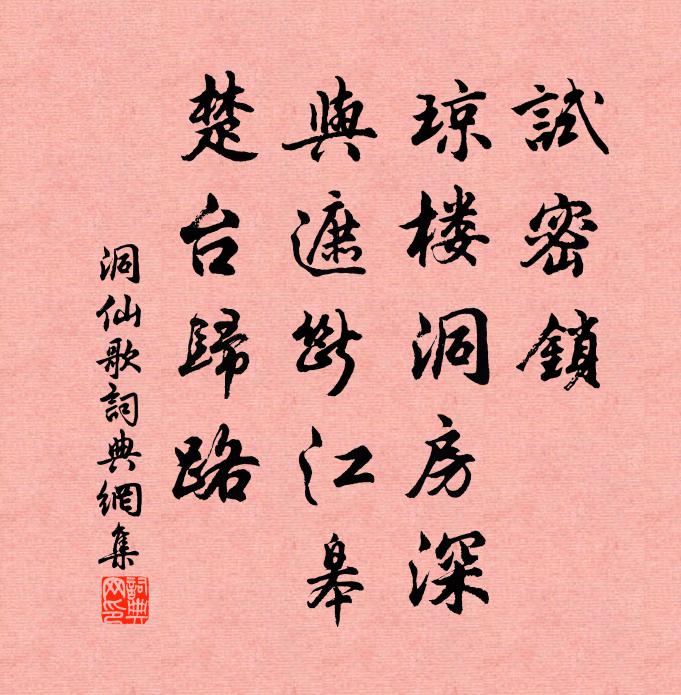 試密鎖
琼楼洞房深
與遮斷江皋
楚台歸路
洞仙歌詞典網集
詞典網印